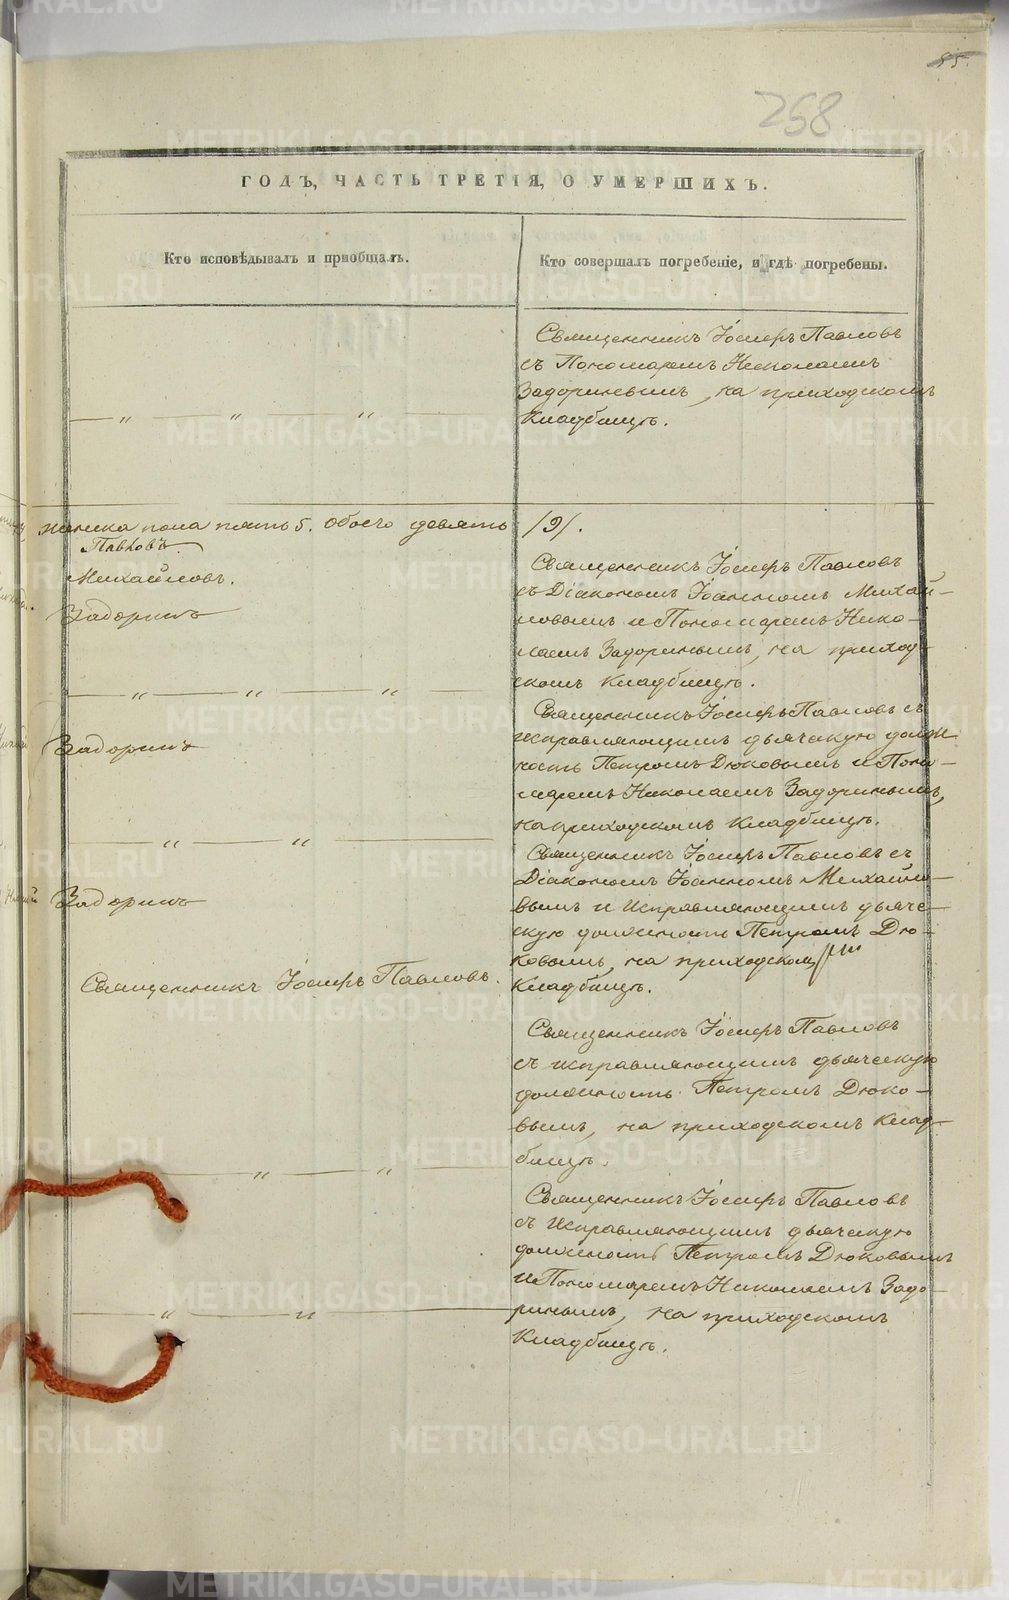 85.
268
ГОДЪ, ЧАСТЬ ТРЕТІЯ, О УМЕРШИХЪ.
Кто исповѣдывалъ и пріобщалъ.
Кто совершалъ погребеніе, и гдѣ погребены.
Священникъ Іосифъ Павловъ
съ Пономаремъ Николаемъ
Задоринымъ, на приходскомъ
Кладбищѣ.
— „ — „ — „ —
женска пола пять 5. Обоего девять /9/.
Павловъ.
Михайловъ.
Задоринъ
Священникъ Іосифъ Павловъ
съ Діакономъ Іоанномъ Михай-
ловымъ и Пономаремъ Нико-
лаемъ Задоринымъ, на приход-
скомъ Кладбищѣ.
— „ — „ — „ —
Задоринъ
Священникъ Іосифъ Павловъ съ
исправляющимъ дьячскую долж
ность Петромъ Дюковымъ и Поно-
маремъ Николаемъ Задоринымъ,
на приходскомъ Кладбищѣ.
— „ — „ —
Задоринъ
Священникъ Іосифъ Павловъ съ
Діакономъ Іоанномъ Михайло-
вымъ и исправляющимъ дьяче-
скую должность Петромъ Дю-
ковымъ, на приходскомъ
Кладбищѣ.
Священникъ Іосифъ Павловъ.
Священникъ Іосифъ Павловъ
съ исправляющимъ дьяческую
должность Петромъ Дюко-
вымъ, на приходскомъ Клад-
бищѣ.
— „ — „ —
Священникъ Іосифъ Павловъ
съ исправляющимъ дьяческую
должность Петромъ Дюковымъ
и Пономаремъ Николаемъ Задо-
ринымъ, на приходскомъ
Кладбищѣ.
— „ — „ —
METRIKI.GASO-URAL.RU